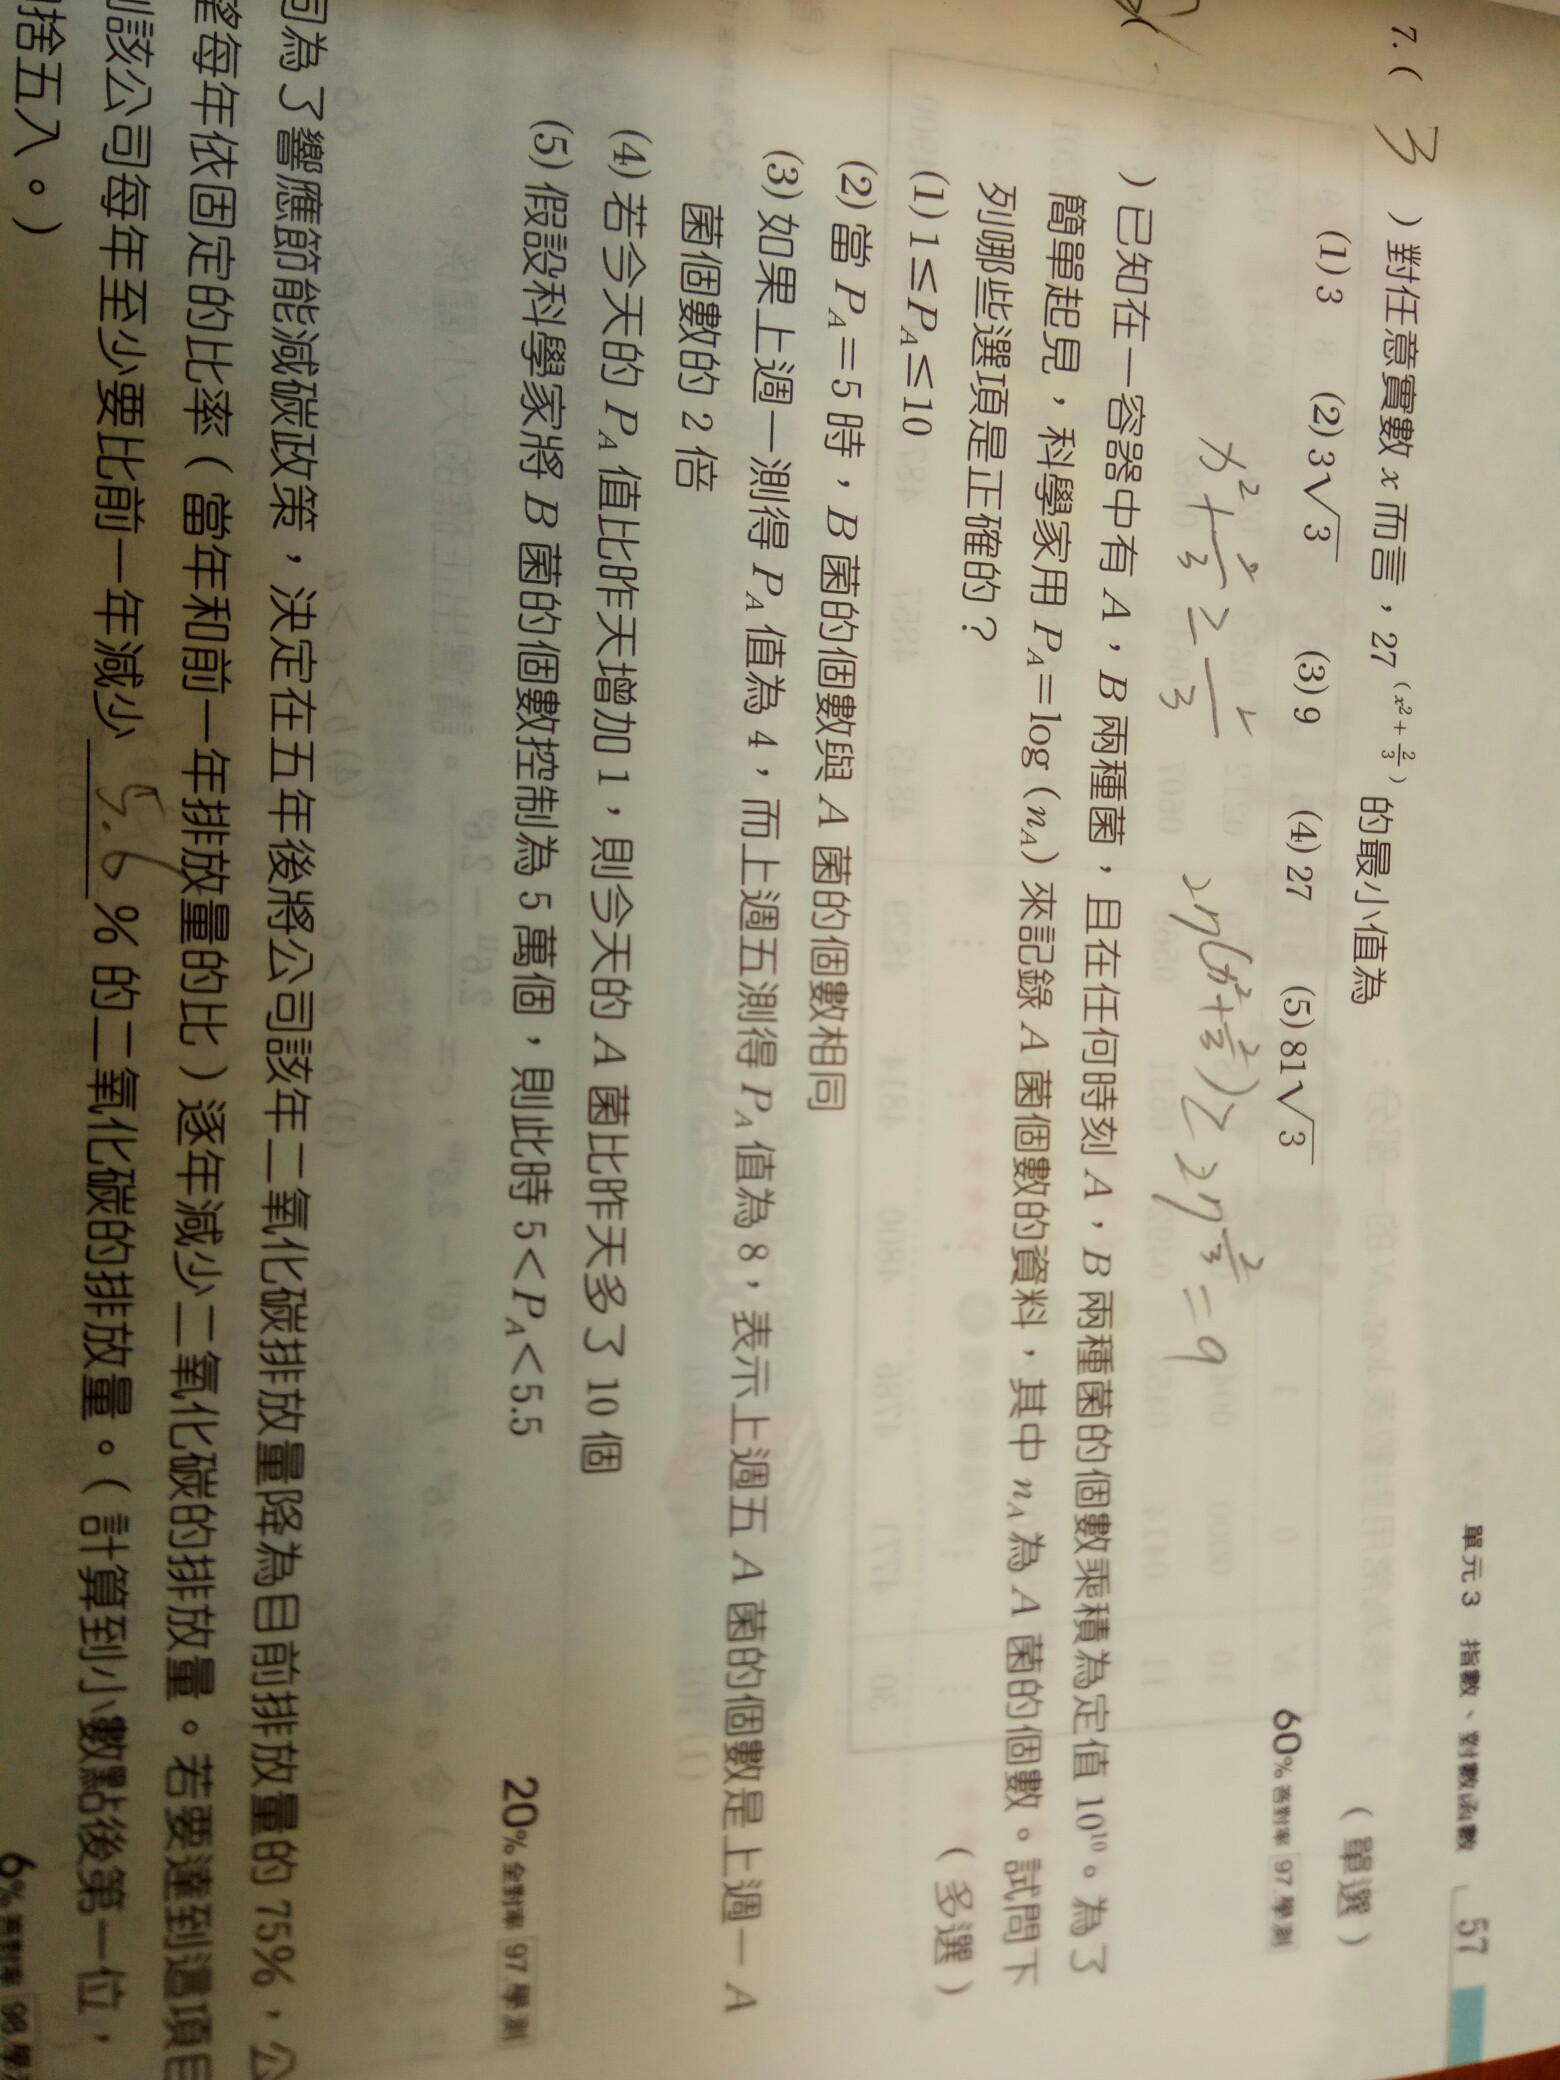 單元 3 指數、對數函數 57
7. ( 3 ) 對任意實數 x 而言，27^(x²+2/3) 的最小值為 （單選）
(1) 3 (2) 3√3 (3) 9 (4) 27 (5) 81√3
60% 答對率 97.學測
27(x²+2/3) ≥ 27^2/3 = 9
) 已知在一容器中有 A，B 兩種菌，且在任何時刻 A，B 兩種菌的個數乘積為定值 10¹⁰。為了
簡單起見，科學家用 P_A=log (n_A) 來記錄 A 菌個數的資料，其中 n_A 為 A 菌的個數。試問下
列哪些選項是正確的？ （多選）
(1) 1≤P_A≤10
(2) 當 P_A=5 時，B 菌的個數與 A 菌的個數相同
(3) 如果上週一測得 P_A 值為 4，而上週五測得 P_A 值為 8，表示上週五 A 菌的個數是上週一 A
菌個數的 2 倍
(4) 若今天的 P_A 值比昨天增加 1，則今天的 A 菌比昨天多了 10 個
(5) 假設科學家將 B 菌的個數控制為 5 萬個，則此時 5<P_A<5.5
20% 全對率 97.學測
司為了響應節能減碳政策，決定在五年後將公司該年二氧化碳排放量降為目前排放量的 75%，公
望每年依固定的比率（當年和前一年排放量的比）逐年減少二氧化碳的排放量。若要達到這項目
則該公司每年至少要比前一年減少 5.6 % 的二氧化碳的排放量。（計算到小數點後第一位，
捨五入。）
6% 答對率 98.學